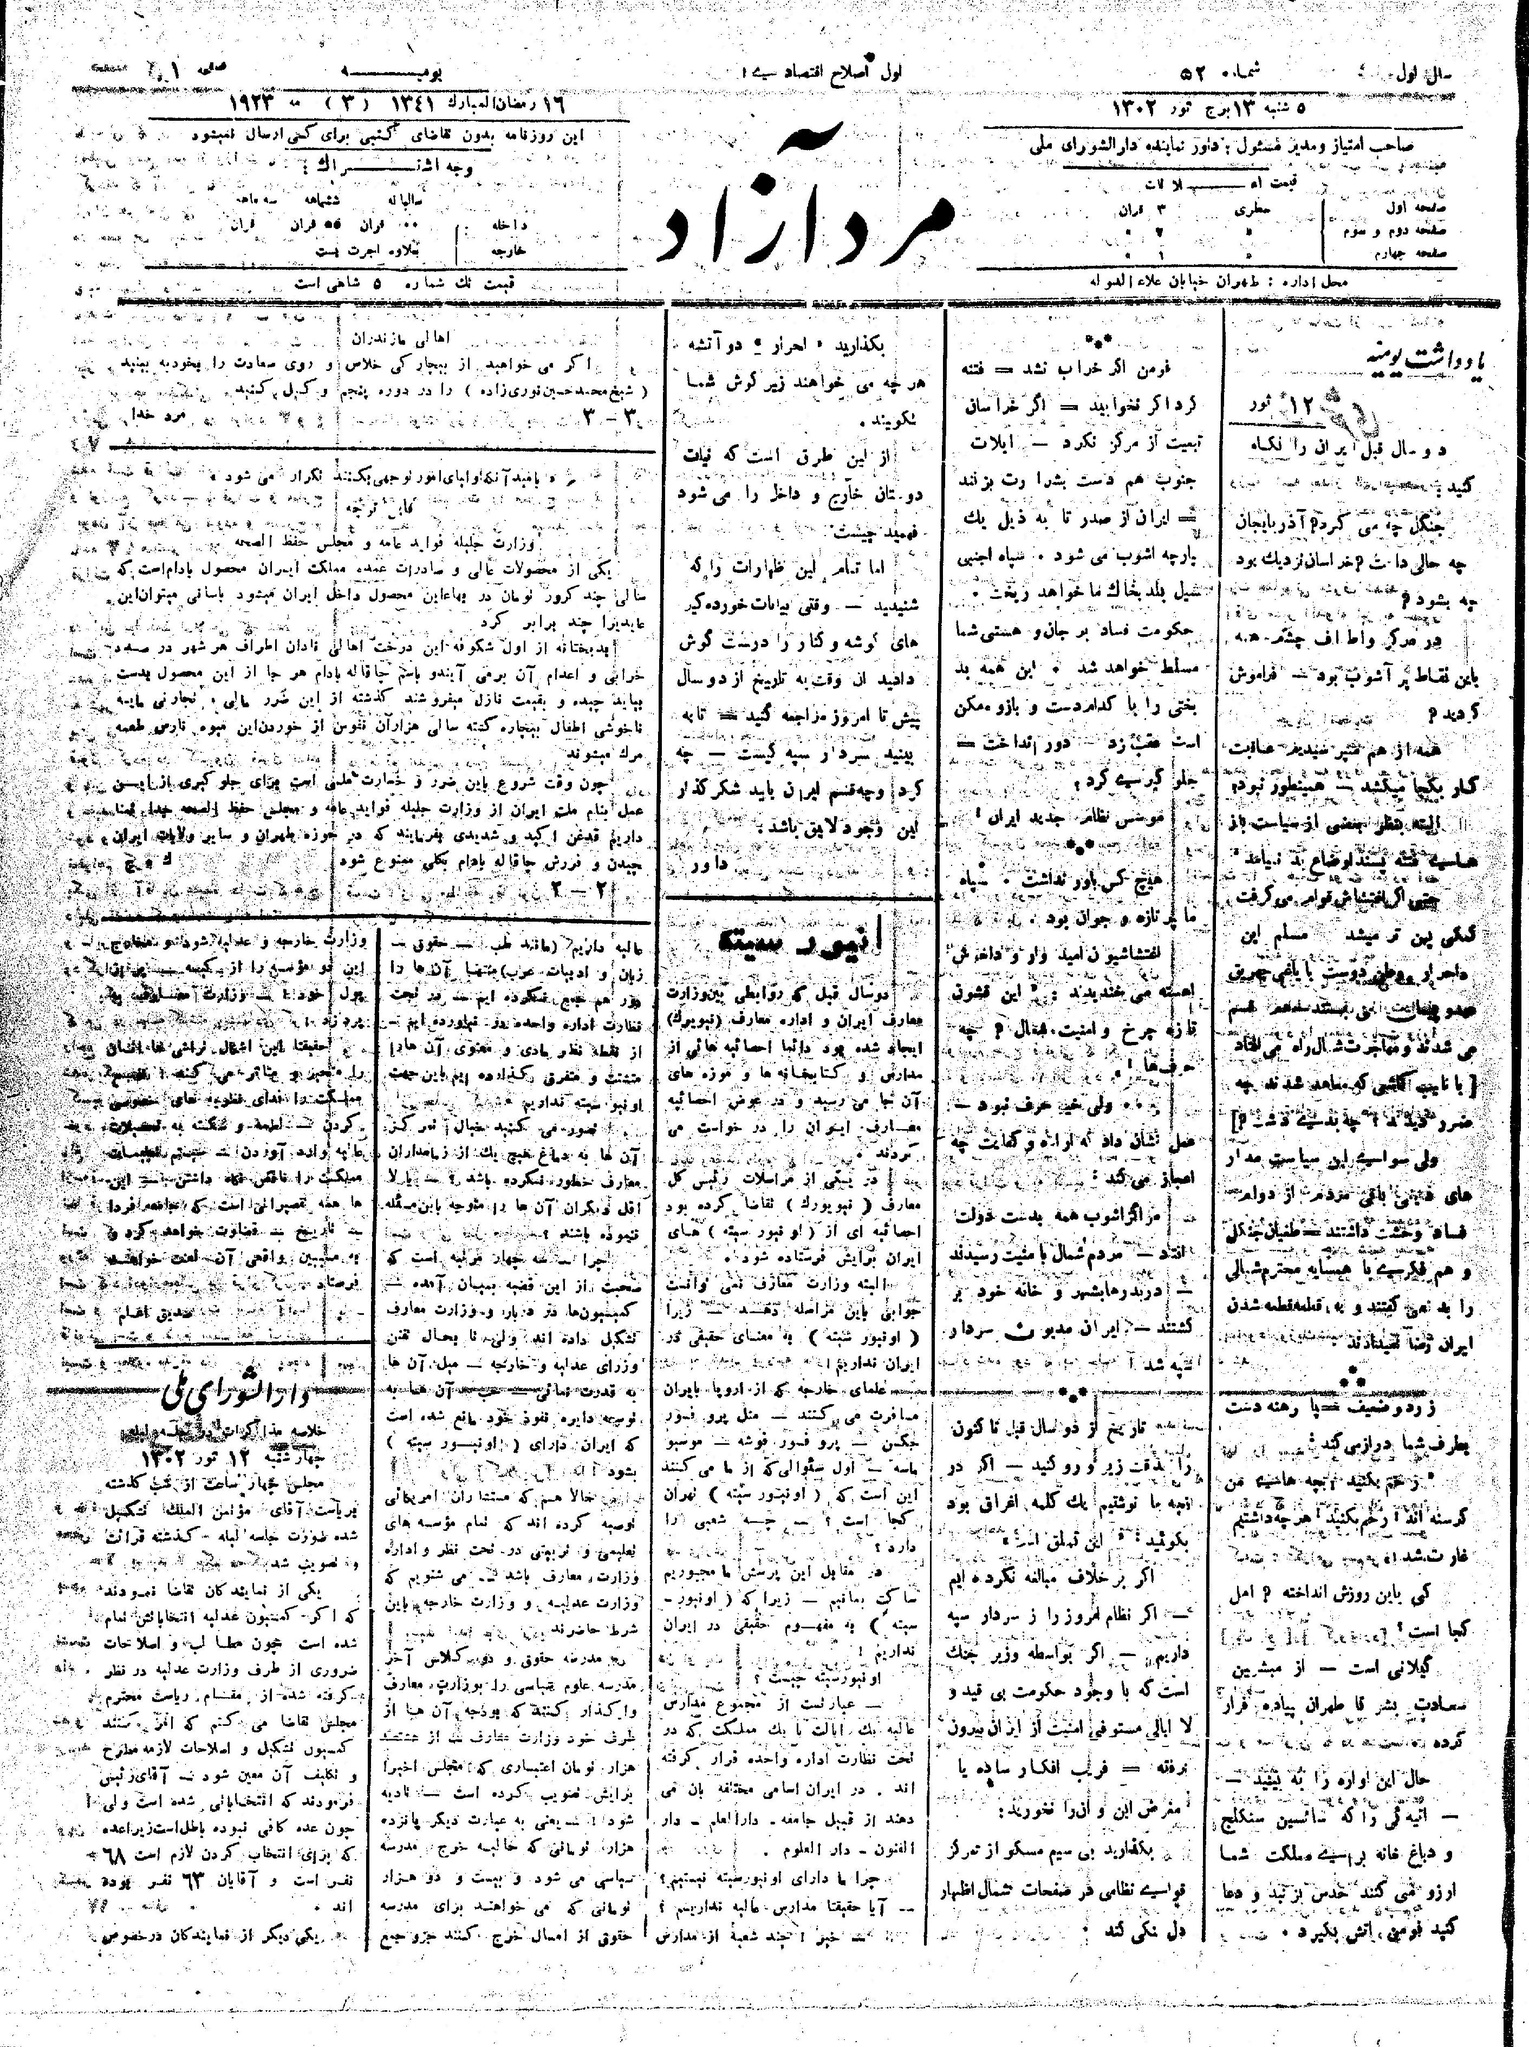 سال اول
شماره ۵۲
اول اصلاح اقتصادی
یومیه
صفحه ۱
۵ شنبه ۱۳ برج ثور ۱۳۰۲
۱۶ رمضان المبارك ۱۳٤۱ (۳) ۱۹۲۳
صاحب امتیاز و مدیر مسئول : داور نماینده دارالشورای ملی
صفحه اول سطری ۳ قران
صفحه دوم و سوم
صفحه چهارم
محل اداره : طهران خیابان علاءالدوله
مرد آزاد
این روزنامه بدون تقاضای کتبی برای کسی ارسال نمیشود
وجه اشتراك :
سالیانه ششماهه سه ماهه
داخله
خارجه بعلاوه اجرت پست
قیمت تك شماره ۵ شاهی است
یادداشت یومیه
۱۲ ثور
دو سال قبل ایران را نگاه
کنید
جنگل چه می کرد؟ آذربایجان
چه حالی داشت؟ خراسان نزدیك بود
چه بشود؟
در مرکز و اطراف چشم همه
باین نقاط پر آشوب بود — فراموش
کردید؟
همه از هم میپرسیدیم عاقبت
کار بکجا میکشد — همینطور نبود؟
البته نظر بعضی از سیاست باز
های فتنه پسند اوضاع بد نیامد
حتی اگر اغتشاش قوام می گرفت
کیکی پهن تر میشد مسلم این
می شدند و مهاجرت شمال راه می افتاد
[ با نایب کاشی که معاهد شدند چه
ضرر دیدند؟ چه بدی داشت؟]
ولی سوای این سیاست مدار
های قیمتی باقی مردم از دوام
فساد وحشت داشتند — طغیان جنگل
و هم فکری با همسایه محترم شمالی
را بد نمی گفتند و به قطعه قطعه شدن
ایران رضا نمیدادند
زرد و ضعیف — پا رهنه دست
بطرف شما دراز می کند :
رحم بکنید! بچه های من
گرسنه اند! رحم بکنید! هرچه داشتیم
غارت شد!
کی باین روزش انداخته؟ اهل
کجا است؟
گیلانی است — از مبشرین
سعادت بشر تا طهران پیاده فرار
کرده
حال این آواره را به بینید —
و دباغ خانه برای مملکت شما
ارزو می کنند حدس بزنید و دعا
کنید فومن آتش بگیرد .
فومن اگر خراب نشد — فتنه
کرد اگر نخوابید — اگر خراسان
تبعیت از مرکز نکرد — ایلات
جنوب هم دست بشرارت بزنند
— ایران از صدر تا به ذیل یك
پارچه اشوب می شود . سپاه اجنبی
سیل بلد بخاك ما خواهد ریخت .
حکومت فساد بر جان و هستی شما
مسلط خواهد شد . این همه بد
بختی را با کدام دست و بازو ممکن
است عقب زد — دور انداخت —
جلوگیری کرد؟
موسس نظام جدید ایران!
هیچ کس باور نداشت . سپاه
ما پر تازه و جوان بود .
اغتشاشیون امیدوار و داخلش
اهسته می خندیدند : این قشون
تازه چرخ و امنیت شمال؟ چه
حرف ها!
ولی خیر حرف نبود —
عمل نشان داد که اراده و کفایت چه
اعجاز می کند :
مراکز اشوب همه بدست دولت
افتاد — مردم شمال با منیت رسیدند
— دربدرها بشهر و خانه خود بر
گشتند — ایران مدیون سردار
سپه شد!
تاریخ از دو سال قبل تا کنون
را بدقت زیر و رو کنید — اگر در
انچه ما نوشتیم یك کلمه اغراق بود
بگوئید : این تملق است
اگر بر خلاف مبالغه نکرده ایم
— اگر نظام امروز را ز سردار سپه
داریم — اگر بواسطه وزیر جنك
است که با وجود حکومت بی قید و
لا ابالی مستوفی امنیت از ایران بیرون
نرفته — فریب افکار ساده یا
مغرض این و آن را نخورید :
بگذارید بی سیم مسکو از تمرکز
قوای نظامی در صفحات شمال اظهار
دل تنگی کند
بگذارید احرار دو آتشه
هر چه می خواهند زیر گوش شما
بگویند .
از این طرق است که نیات
دوستان خارج و داخل را می شود
فهمید چیست
اما تمام این اظهارات را که
شنیدید — وقتی بیانات خورده گیر
های گوشه و کنار را درست گوش
دادید ان وقت به تاریخ از دو سال
پیش تا امروز مراجعه کنید — تا به
بینید سردار سپه کیست — چه
کرد و چه قسم ایران باید شکر گذار
این وجود لایق باشد .
داور
انیور سیته
دو سال قبل که روابطی بین وزارت
معارف ایران و اداره معارف (نیویورك)
ایجاد شده بود دائما احصائیه هائی از
مدارس و کتابخانه ها و موزه های
آن جا می رسید و در عوض احصائیه
معارف ایران را درخواست می
کردند .
در یکی از مراسلات رئیس کل
معارف ( نیویورك ) تقاضا کرده بود
احصائیه ای از ( اونیور سیته ) های
ایران برایش فرستاده شود .
البته وزارت معارف نمی توانست
جوابی باین مراسله بدهد — زیرا
( اونیور سیته ) به معنای حقیقی در
ایران نداریم
علمای خارجه که از اروپا بایران
مسافرت می کنند — مثل پروفسور
جکسن — پروفسور فوشه — موسیو
ماسه — اول سئوالی که از ما می کنند
این است که ( اونیور سیته ) تهران
کجا است؟ — چه شعبی را
دارد؟
در مقابل این پرسش ما مجبوریم
ساکت بمانیم — زیرا که ( اونیور
سیته ) به مفهوم حقیقی در ایران
نداریم!
اونیورسیته چیست؟
— عبارتست از مجموع مدارس
عالیه یك ایالت یا یك مملکت که در
تحت نظارت اداره واحده قرار گرفته
اند . در ایران اسامی مختلفه بان می
دهند از قبیل جامعه - دارالعلم - دار
الفنون - دار العلوم .
چرا ما دارای اونیورسیته نیستیم؟
— آیا حقیقتا مدارس عالیه نداریم؟
— خیر! چند شعبه از مدارس
اهالی مازندران
اگر می خواهید از بیچارگی خلاص و روی سعادت را بخود به بینید
( شیخ محمد حسین نوری زاده ) را در دوره پنجم وکیل کنید .
۳ — ۳ مرد خدا
بامید آنکه اولیای امور توجهی بکنند تکرار می شود .
قابل توجه
وزارت جلیله فواید عامه و مجلس حفظ الصحه
یکی از محصولات عالی و صادرات عمده مملکت ایران محصول بادام است که
سالی چند کرور تومان در بهاء این محصول داخل ایران میشود باسانی میتوان این
عایدی را چند برابر کرد
بدبختانه از اول شکوفه این درخت اهالی نادان اطراف هر شهر در صدد
خرابی و اعدام آن برمی آیند و باسم چاقاله بادام هر جا از این محصول بدست
بیاید چیده و بقیمت نازل میفروشند گذشته از این ضرر مالی و تجارتی مایه
ناخوشی اطفال بیچاره گشته سالی هزاران نفوس از خوردن این میوه نارس طعمه
مرك میشوند
چون وقت شروع باین ضرر و خسارت ملی است برای جلوگیری از این
عمل بنام ملت ایران از وزارت جلیله فواید عامه و مجلس حفظ الصحه جدا تمنا
داریم قدغن اکید و شدیدی بفرمایند که در حوزه طهران و سایر ولایات ایران
چیدن و فروش چاقاله بادام بکلی ممنوع شود
۲ — ۲
عالیه داریم (مانند طب — حقوق —
زبان و ادبیات عرب) منتها آن ها را
دور هم جمع نکرده ایم — در تحت
نظارت اداره واحده در نیاورده ایم —
از نقطه نظر مادی و معنوی آن ها را
متشتت و متفرق گذارده ایم باین جهت
اونیورسیته نداریم
تصور می کنید خیال تمرکز
آن ها به دماغ هیچ یك از زمامداران
معارف خطور نکرده باشد؟ — یا لا
اقل دیگران آن ها را متوجه باین مسئله
ننموده باشند؟
چرا — سه چهار مرتبه است که
صحبت از این قضیه بمیان آمده —
کمیسیون ها در دربار و وزارت معارف
تشکیل داده اند ولی تا بحال تفنن
وزرای عدلیه و خارجه — میل آن ها
به قدرت نمائی — حب آن ها به
توسعه دایره نفوذ خود مانع شده است
که ایران دارای ( اونیور سیته )
بشود!
حالا هم که مستشاران امریکائی
توصیه کرده اند که تمام مؤسسه های
تعلیمی و تربیتی در تحت نظر و اداره
وزارت معارف باشد — می شنویم که
وزارت عدلیه و وزارت خارجه باین
شرط حاضرند
مدرسه حقوق و دو کلاس آخر
مدرسه علوم سیاسی را بوزارت معارف
واگذار کنند که بودجه آن ها از
طرف خود وزارت معارف
هزار تومان اعتباری که مجلس اخیرا
برایش تصویب کرده است — تادیه
شود! — یعنی به عبارت دیگر پانزده
هزار تومانی که حالیه خرج مدرسه
سیاسی می شود و بیست و دو هزار
تومانی که می خواهند برای مدرسه
حقوق از امسال خرج کنند جزو جمع
وزارت خارجه و عدلیه شود و مخارج
این دو مؤسسه را از کیسه
پول خود! — وزارت معارف به
پردازد
حقیقتا این اشکال تراشی ها انسان
را متحیر و متاثر می کند!
مملکت را فدای نظریه های خصوصی
کردن — لطمه و شکسته به تحصیلات
عالیه وارد آوردن —
مملکت را ناقص نگاه داشتن — این
ها همه تقصیراتی است که جامعه فردا
— تاریخ — قضاوت خواهد کرد و
به مسببین واقعی آن لعنت خواهند
فرستاد
صدیق اعلم
دارالشورای ملی
خلاصه مذاکرات
چهارشنبه ۱۲ ثور ۱۳۰۲
مجلس چهار ساعت از شب گذشته
بریاست آقای مؤتمن الملك تشکیل
شده صورت جلسه لیله گذشته قرائت
و تصویب شد
یکی از نمایندگان تقاضا نمودند
که اگر کمسیون عدلیه انتخاباتش تمام
شده است چون مطالب و اصلاحات
ضروری از طرف وزارت عدلیه در نظر
گرفته شده از مقام ریاست محترم
مجلس تقاضا می کنم که امر کنند
کمسیون تشکیل و اصلاحات لازمه مطرح
و تکلیف آن معین شود — آقای رئیس
فرمودند که انتخاباتی شده است ولی
چون عده کافی نبوده باطل است زیرا عده
که برای انتخاب کردن لازم است ۶۸
نفر است و آقایان ۶۳ نفر بوده
اند .
یکی دیگر از نمایندگان در خصوص